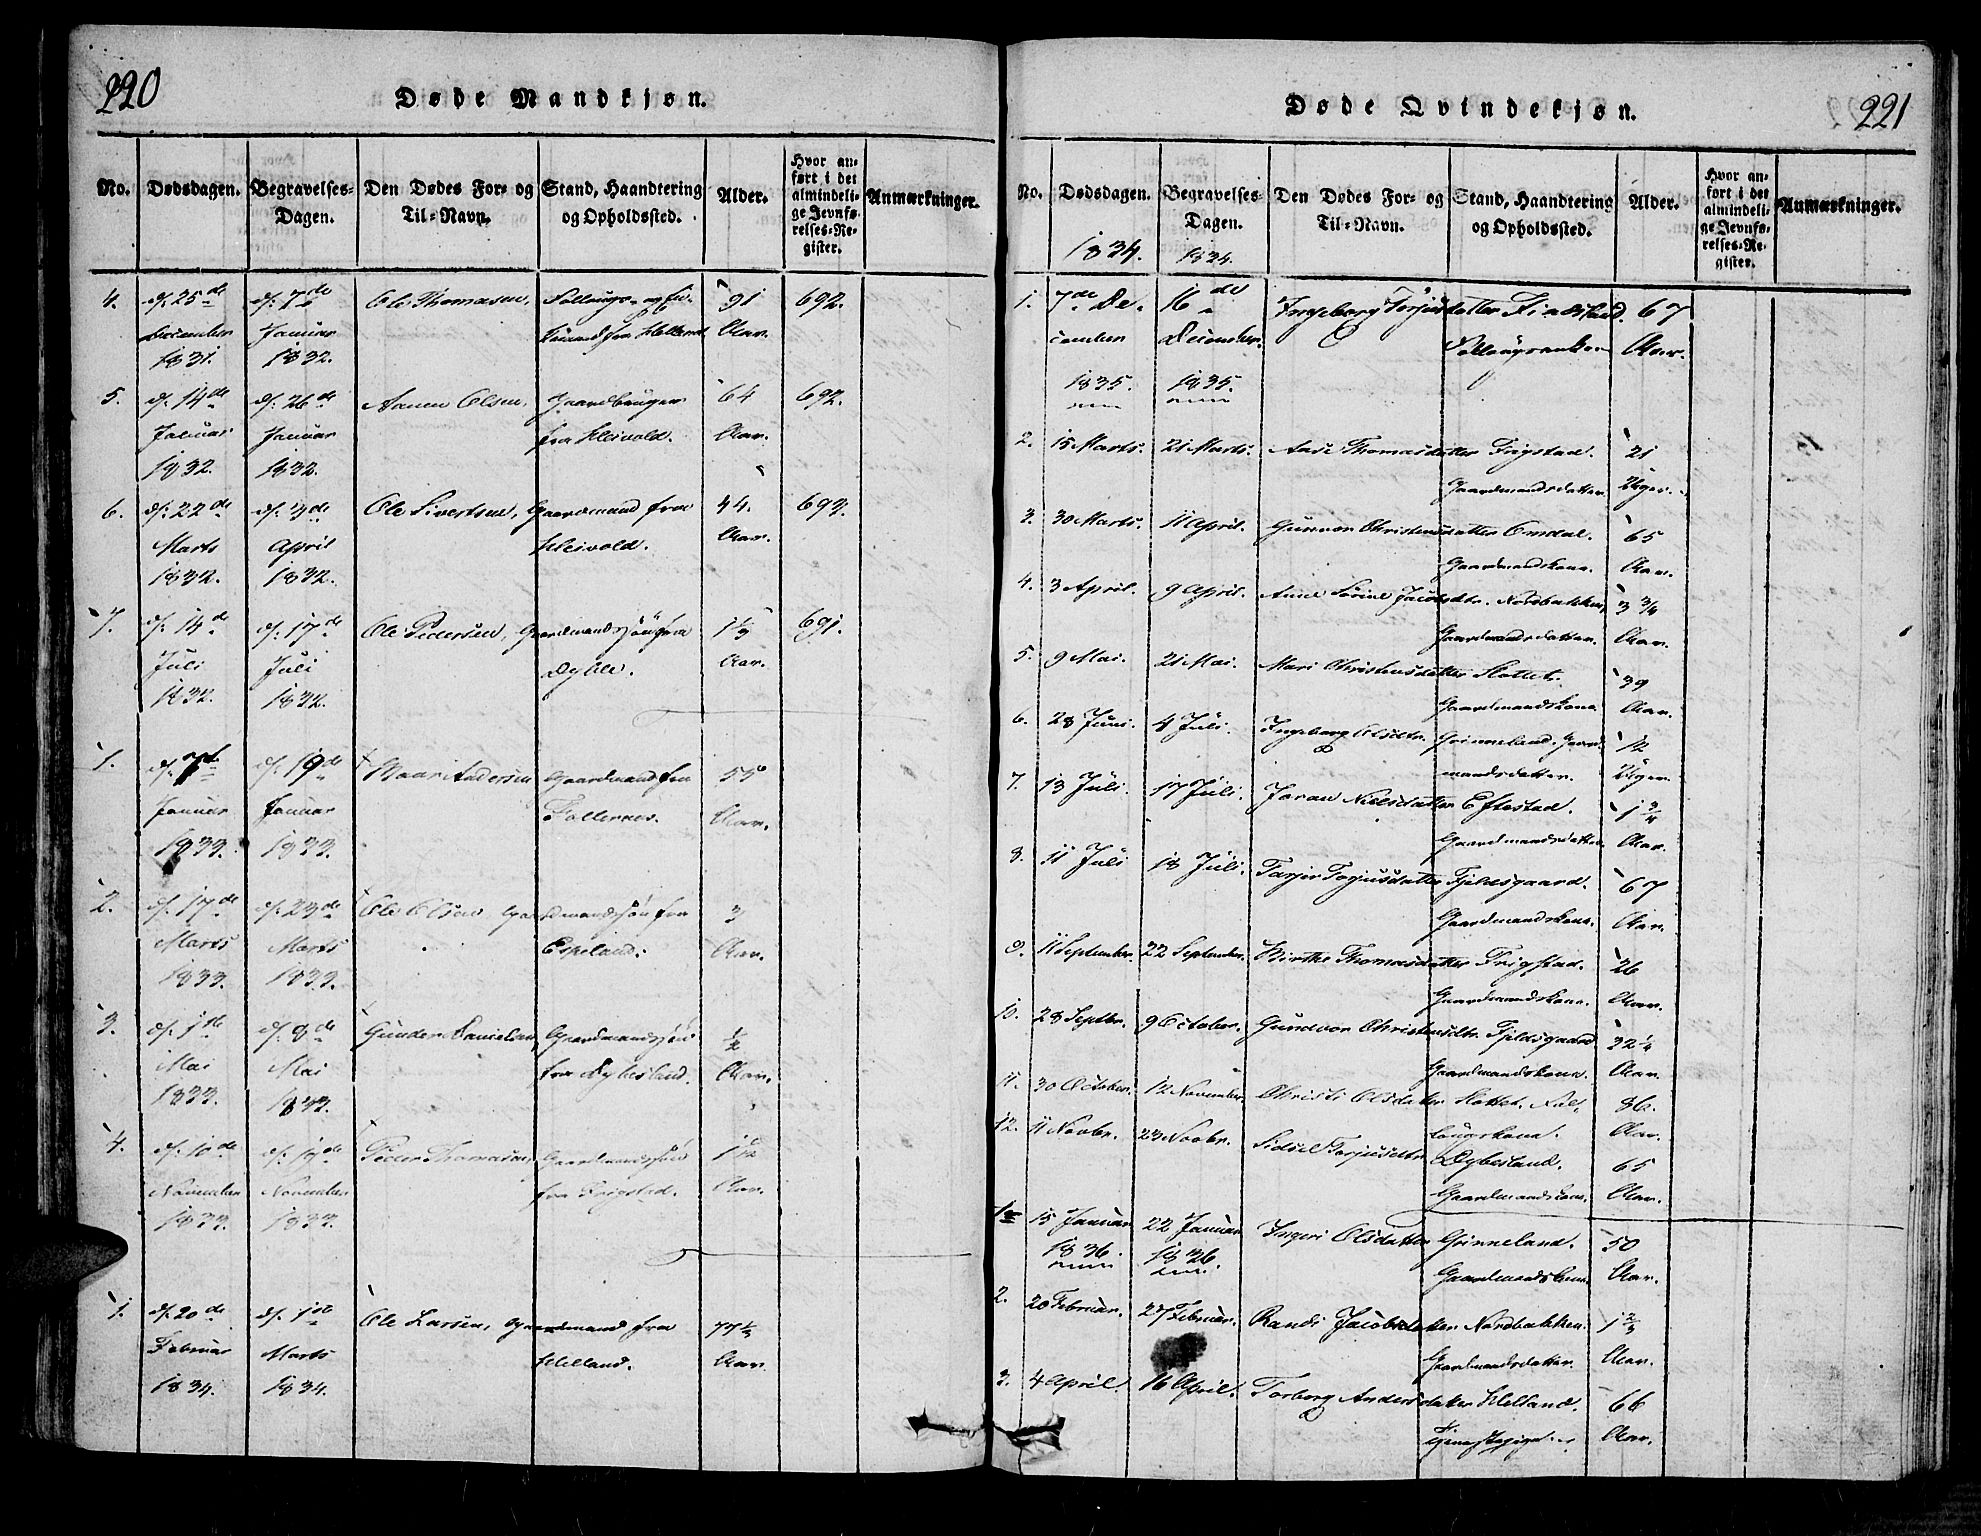 220
Døde Mandkjøn.
No. Dødsdagen. Begravelses-Dagen. Den Dødes For- og Til-Navn. Stand, Haandtering og Opholdssted. Alder. Hvor anført i det almindelige Jevnførelses-Register. Anmærkninger.
4. d: 25de d: 7de Ole Thomasen, 91 692.
December Januar fra Helland Aar.
1831. 1832.
5. d: 14de d: 26de Aanen Olsen, Gaardbruger 64 692.
Januar Januar fra Kleivold. Aar.
1832. 1832.
6. d: 22de d: 3de Ole Sivertsen, Gaardmand fra 44. 693.
Marts April Kleivold. Aar.
1832. 1832.
7. d: 14de d: 17de Ole Pedersen, Gaardmandssøn fra 1 1/3 691.
Juli Juli Aar.
1832. 1832.
1. d: 19de Andersen Gaardmand fra 55
Januar Januar Follernes. Aar.
1833. 1833.
2. d: 17de d: 23de Ole Olsen Gaardmandssøn fra 3
Marts Marts Espeland. Aar.
1833. 1833.
3. d: 1ste d: 8de Gunder Danielsen, Gaardmandssøn 1/2
Mai Mai fra Dybesland. Aar.
1833. 1833.
4. d: 10de d: 17de Peder Thomasen, Gaardmandssøn 1 1/2
November November fra Frigstad. Aar.
1833. 1833.
1. d: 20de d: 1ste Ole Larsen, Gaardmand fra 77 1/2
Februar Marts Helland. Aar.
1834. 1834.
221
Døde Qvindekjøn.
No. Dødsdagen. Begravelses-Dagen. Den Dødes For- og Til-Navn. Stand, Haandtering og Opholdssted. Alder. Hvor anført i det almindelige Jevnførelses-Register. Anmærkninger.
1834. 1834.
1. 7de De- 16de Ingeborg Torjusdatter Findsland. 67
cember December. Føllaugsenke Aar.
1835. 1835.
2. 15 Marts. 21 Marts. Aase Thomasdatter Frigstad. 21
Gaardmandsdatter. Uger.
3. 30 Marts. 11 April. Gunvor Christensdatter Omdal. 65
Gaardmandskone. Aar.
4. 3 April. 9 April. Anne Sørine Jacobsdtr. Nordbakken, 3 3/4
Gaardmandsdatter. Aar.
5. 9 Mai. 21 Mai. Mari Christensdatter Slottet. 39
Gaardmandskone. Aar.
6. 28 Juni. 4 Juli. Ingeborg Olsdtr. Grinneland. Gaard- 12
mandsdatter. Uger.
7. 13 Juli. 17 Juli. Joran Nielsdatter Eftestad. 1 3/4
Gaardmandsdatter. Aar.
8. 11 Juli 18 Juli. Tarjer Torjusdatter Fjeldsgaard. 67
Gaardmandskone. Aar.
9. 11 September. 22 September. Birthe Thomasdatter Frigstad. 26
Gaardmandskone. Aar.
10. 28 Septbr. 9 October. Gundvor Christensdtr. Fjeldsgaard 32 1/4
Gaardmandskone. Aar.
11. 30 October. 12 November. Christi Olsdatter Slottet. Føl- 86.
laugskone. Aar.
12. 11 Novbr. 23 Novbr. Sidsel Torjusdtr. Dybesland. 65
Gaardmandskone. Aar.
1. 15 Januar 22 Januar Ingeri Olsdatter Grinneland. 50
1836. 1836. Gaardmandskone. Aar.
2. 20 Februar. 27 Februar. Randi Jacobsdatter Nordbakken. 1 2/3
Gaardmandsdatter. Aar.
3. 4 April. 16 April. Torborg Andersdatter Helland. 66
Tjenestepige. Aar.